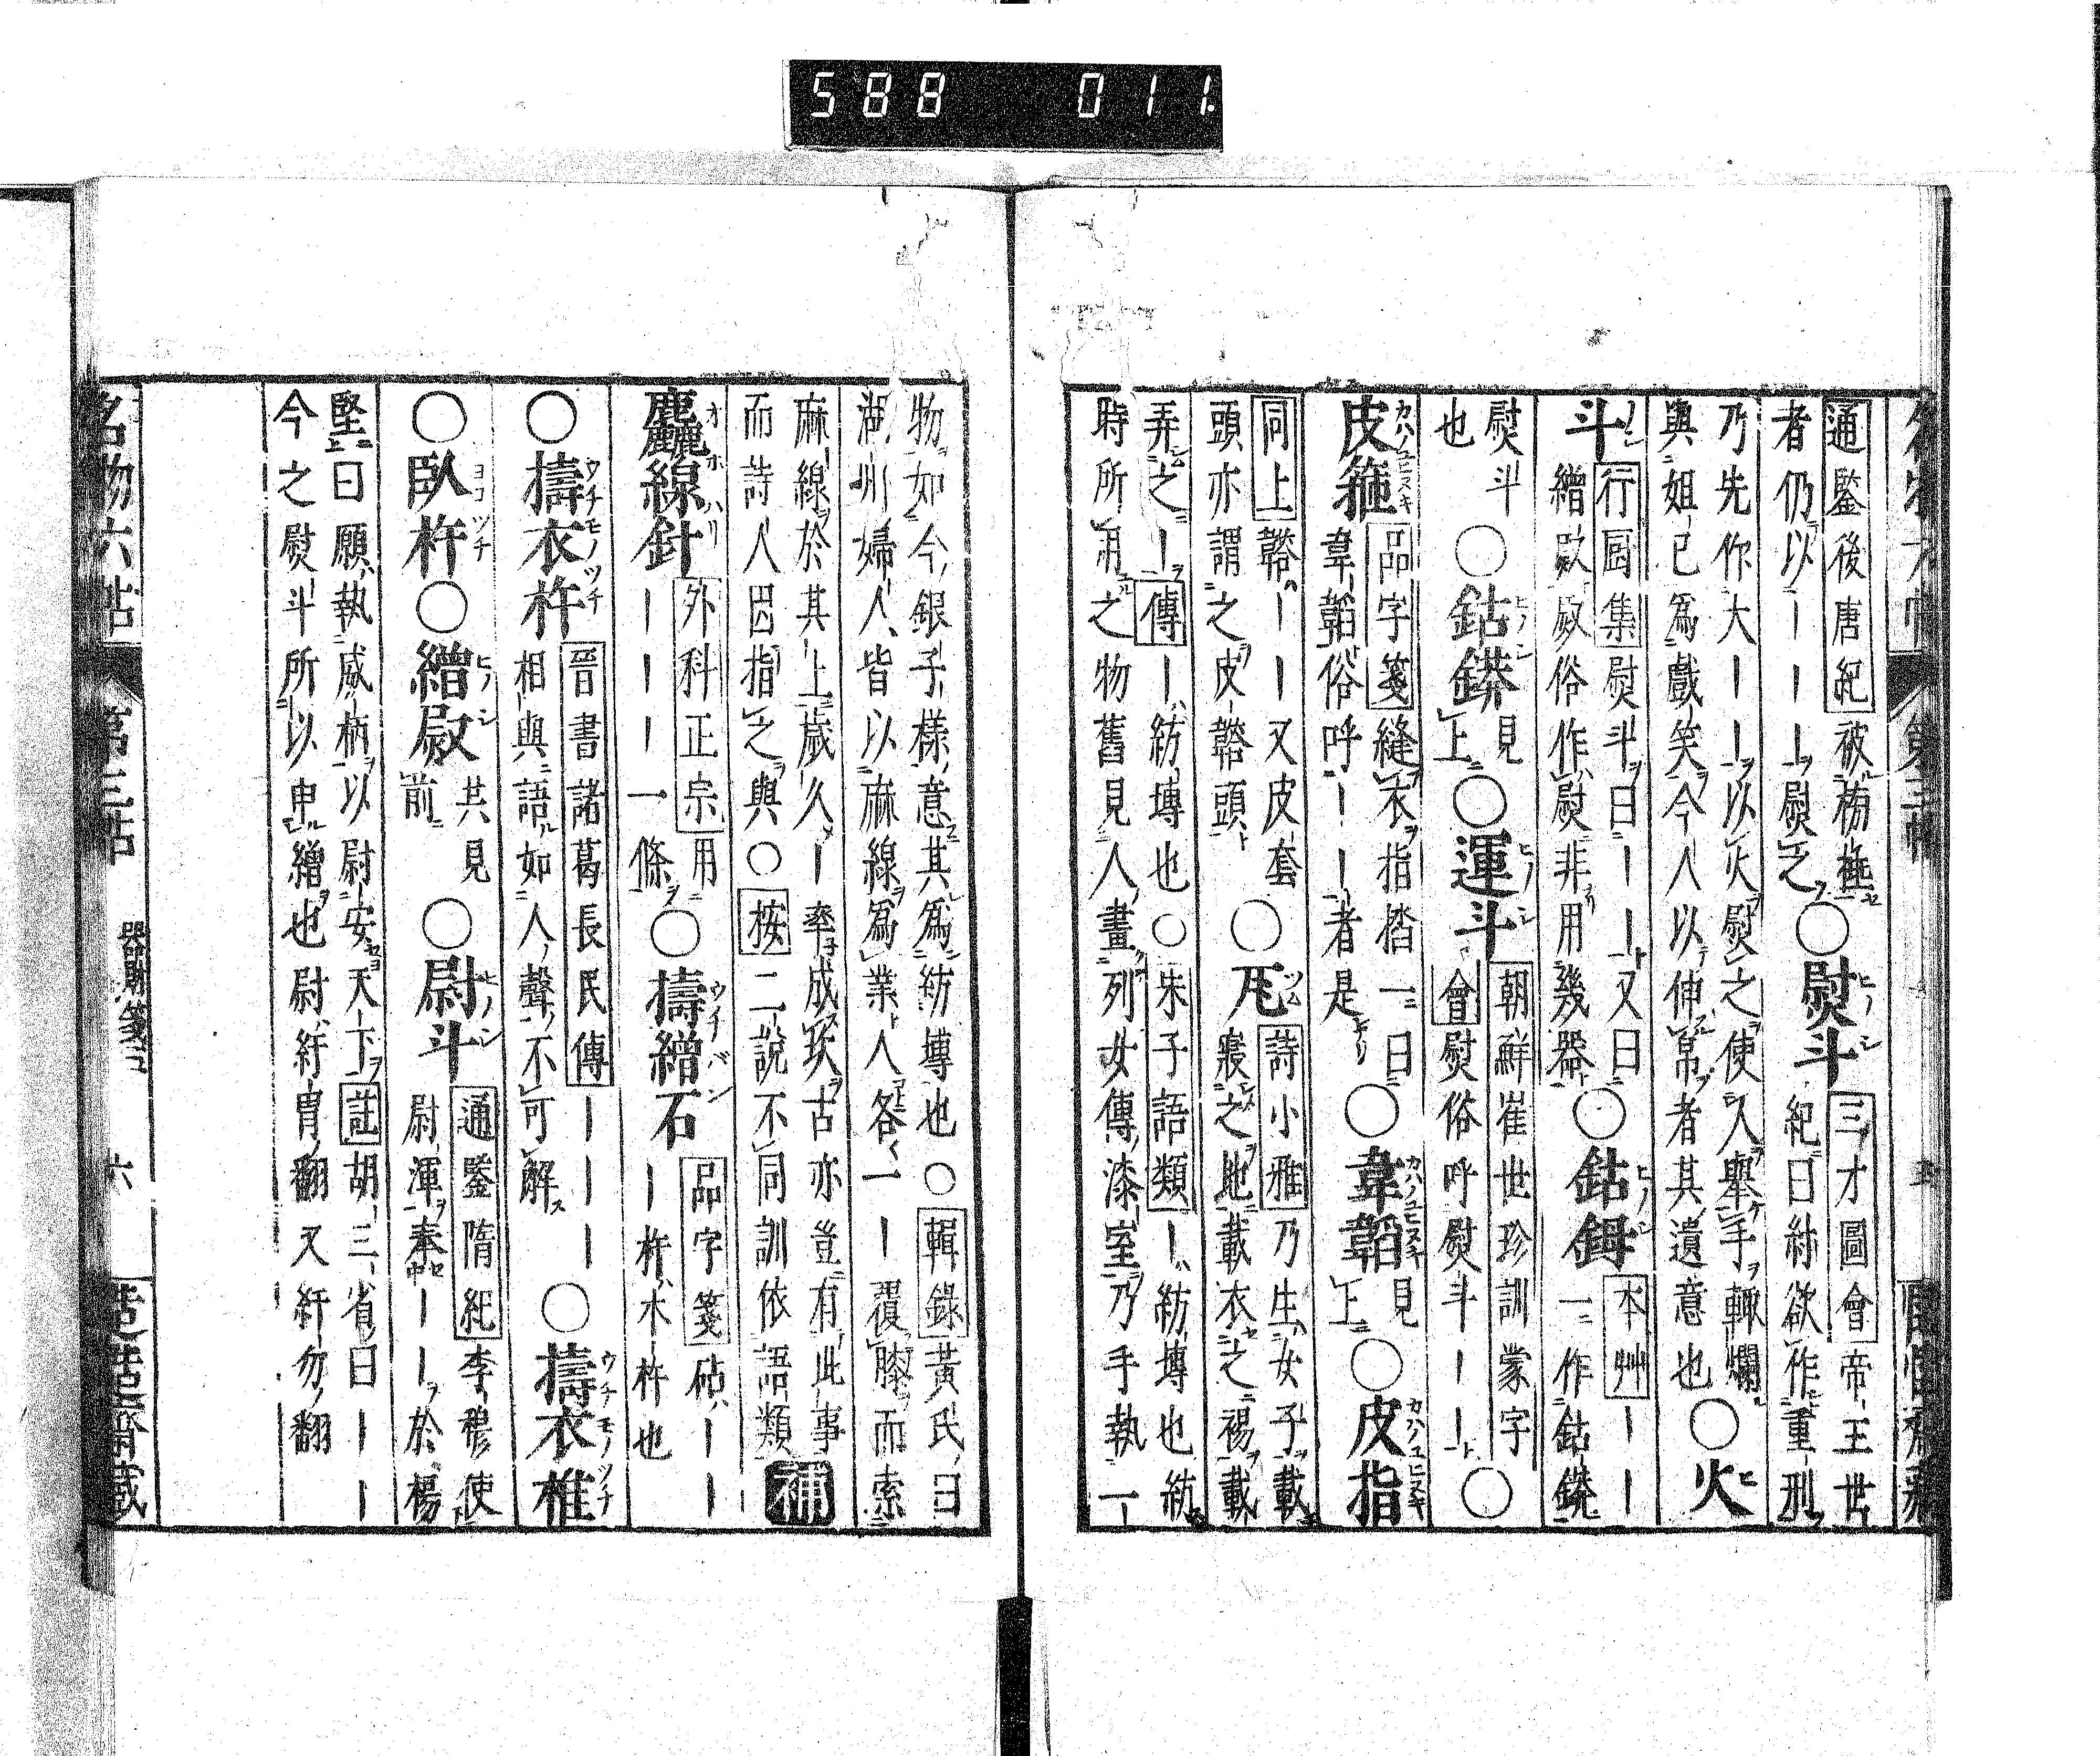 588 011.
通鑒後唐紀被楇極
者仍以｜｜｜熨之○熨斗三才圖會帝王世
紀曰紂欲作重刑
乃先作大｜｜以火熨之使人舉手輙爛
與妲己為戲笑今人以伸帛者其遺意也○火
斗行圄集熨斗曰｜｜又曰
繒㷉㕟俗作熨非用幾器○鈷鉧本艸｜｜
一作鈷鏻
熨斗
也○鈷鏻見
上○運斗朝鮮崔世珍訓蒙字
會熨俗呼熨斗｜｜○
皮箍品字箋縫衣指揩一曰
韋韜俗呼｜｜者是○韋韜見
上○皮指
同上韜｜｜又皮套
頭亦謂之皮韜頭○瓦詩小雅乃生女子載
寢之地載衣之裼載
弄之｜傳｜紡塼也○朱子語類｜紡塼也紡
時所用之物舊見人畫列女傳漆室乃手執一｜
物如今銀子樣意其為紡塼也○輯錄黃氏曰
湖州婦人皆以麻線為業人各一｜覆膝而索
麻線於其上歲久｜率成坎古亦豈有此事
而詩人因指之與○按二說不同訓依語類補
麤線針外科正宗用
｜｜｜一條○擣繒石品字箋砧｜｜
｜杵木杵也
○擣衣杵晉書諸葛長民傳｜｜｜
相與語如人聲不可解○擣衣椎
○臥杵○繒㕟共見
前○尉斗通鑒隋紀李穆使
尉渾奉｜｜於楊
堅曰願執威柄以尉安天下註胡三省曰｜｜
今之熨斗所以申繒也尉紆胃翻又紆勿翻
名物六帖 第三帖 器財箋三 六